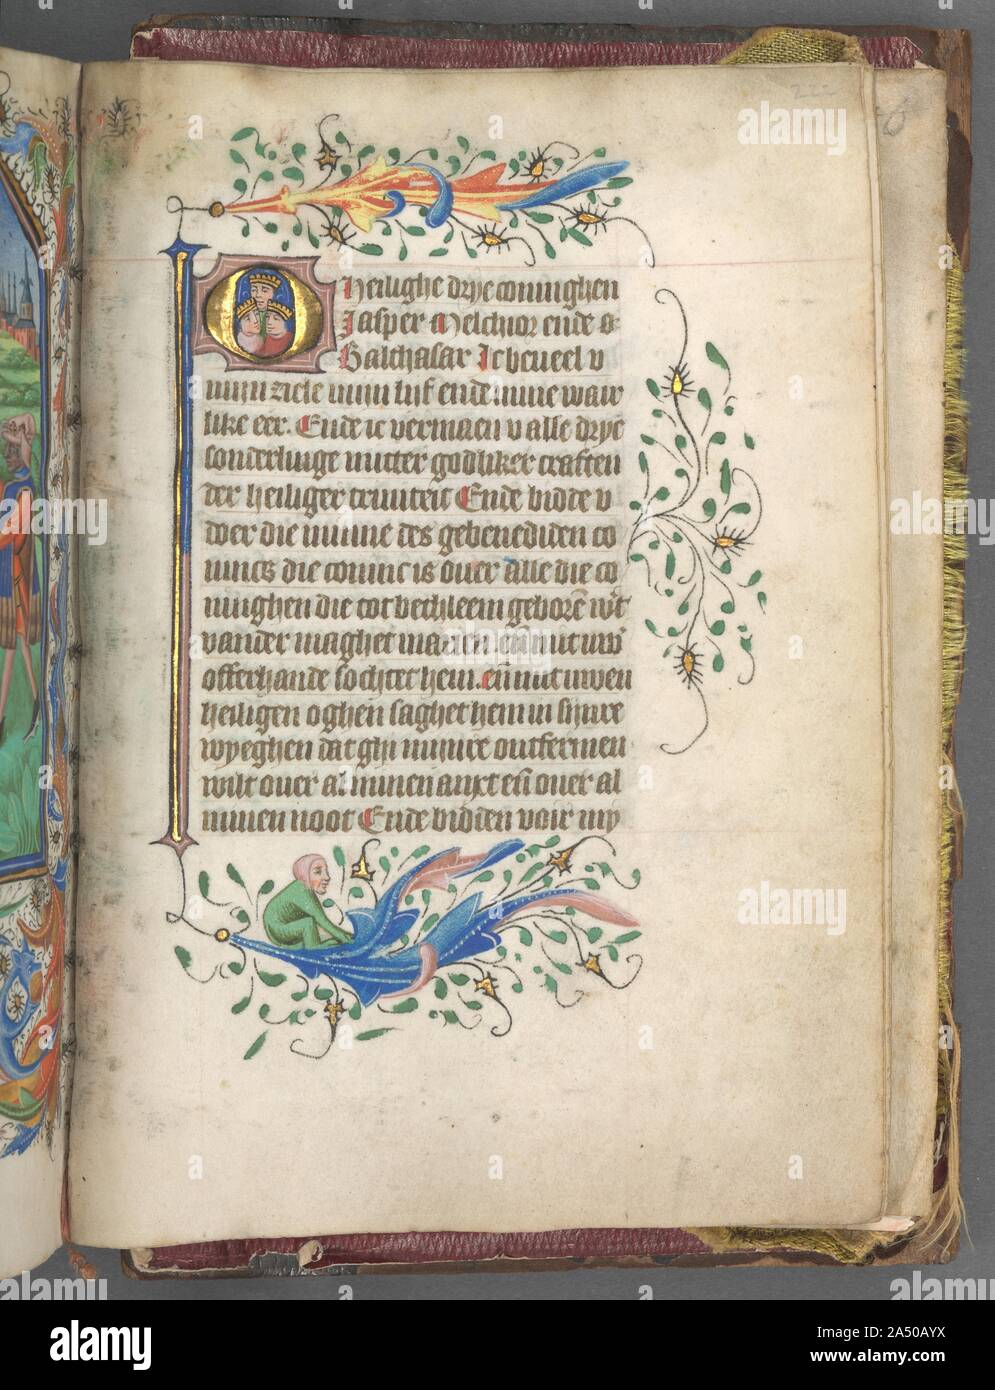 222
O Heilighe drye coninghen
Jasper Melchior ende
Balthasar Ic beveel v
mijn ziele mijn lijf ende mine waer
like eer. Ende ic vermaen v alle drye
sonderlinge mitter godliker craften
der heiliger triniteit Ende bidde v
doer die minne des gebenediden co
nincs die coninc is ouer alle die co
ninghen die tot bethleem geborē wt
vander maghet marien. en̄ mit uwē
offerhande sochtet hem. en̄ mit uwen
heiligen oghen saghet hem in sijnre
wyeghen dat ghi mijnre ontfermen
wilt ouer al minen anxt en̄ ouer al
minen noot Ende bidden voir my
alamy
alamy
Image ID: 2A50AYX
www.alamy.com